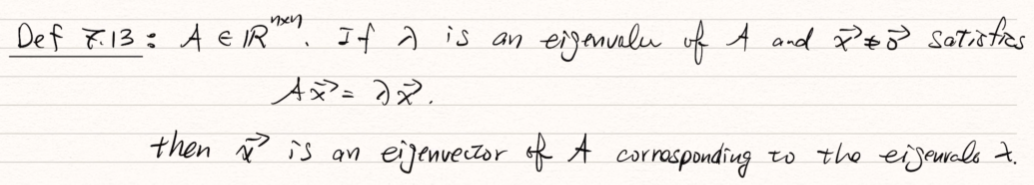 Def 7.13: A ∈ ℝⁿˣⁿ. If λ is an eigenvalu of A and x⃗ ≠ 0⃗ satisfies
Ax⃗ = λx⃗.
then x⃗ is an eigenvector of A corresponding to the eigenvale λ.